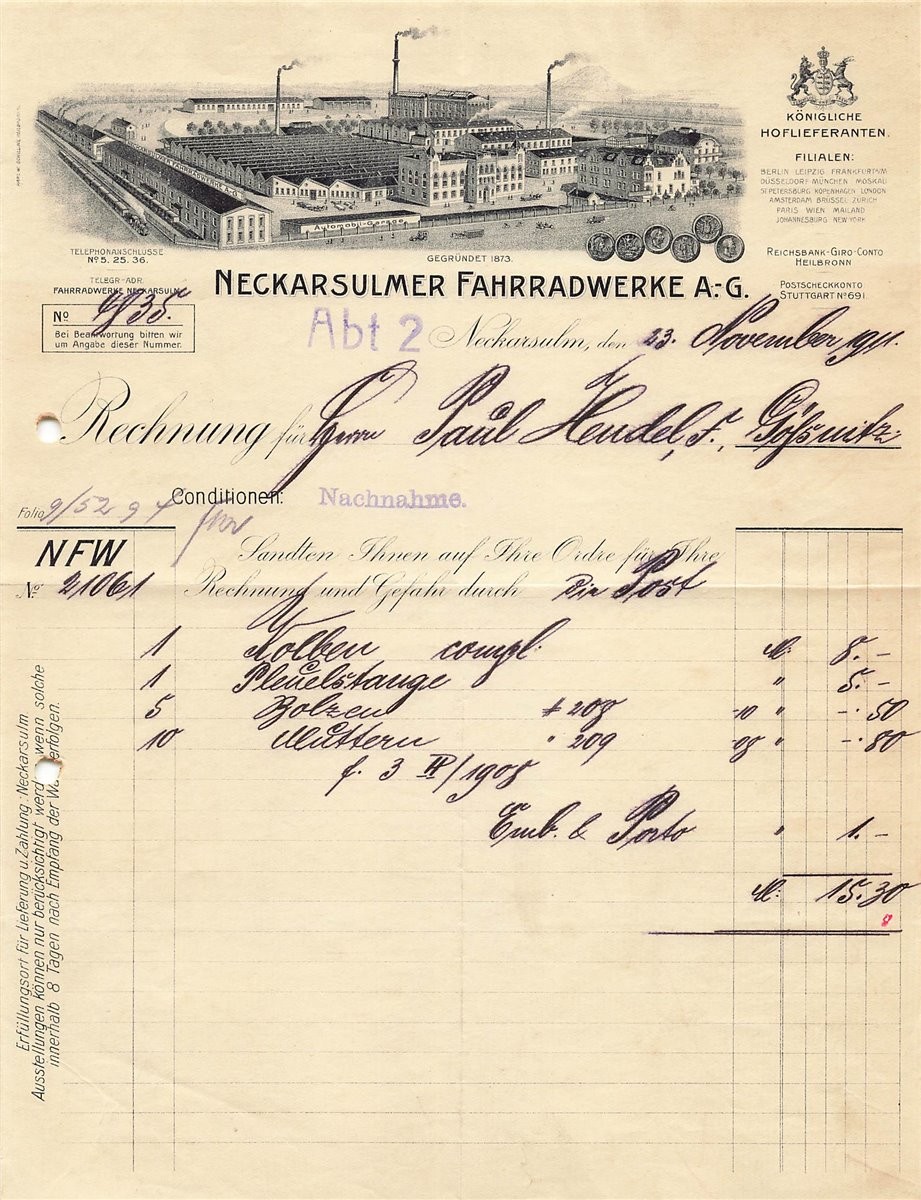 KÖNIGLICHE
HOFLIEFERANTEN.
FILIALEN:
BERLIN LEIPZIG FRANKFURT A/M
DÜSSELDORF MÜNCHEN MOSKAU
ST PETERSBURG KOPENHAGEN LONDON
AMSTERDAM BRÜSSEL ZÜRICH
PARIS WIEN MAILAND
JOHANNESBURG NEW-YORK
Automobil-Garage
TELEPHONANSCHLÜSSE
No 5. 25. 36.
GEGRÜNDET 1873.
REICHSBANK-GIRO-CONTO
HEILBRONN
TELEGR.-ADR.
FAHRRADWERKE NECKARSULM
POSTSCHECKKONTO
STUTTGART No 691
NECKARSULMER FAHRRADWERKE A.-G.
No 35.
Bei Beantwortung bitten wir
um Angabe dieser Nummer.
Abt 2
Neckarsulm, den 23. November 1911.
Rechnung für Herrn Paul Hendel, F., Gößnitz
Folio 9/52
Conditionen: Nachnahme.
NFW
No. 21061
Sandten Ihnen auf Ihre Ordre für Ihre
Rechnung und Gefahr durch die Post
1 Kolben compl. M. 8.-
1 Pleuelstange " 5.-
5 Bolzen # 208 -10 " -.50
10 Muttern " 209 -08 " -.80
f. 3 IP/1908
Emb. & Porto " 1.-
M. 15.30
Erfüllungsort für Lieferung u. Zahlung: Neckarsulm
Ausstellungen können nur berücksichtigt werd wenn solche
innerhalb 8 Tagen nach Empfang der Wa erfolgen.